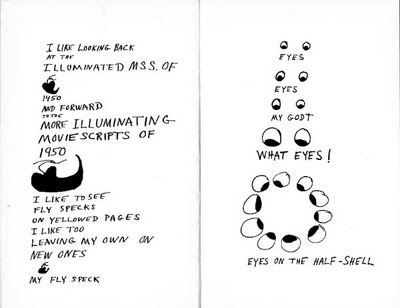 I LIKE LOOKING BACK
AT THE
ILLUMINATED MSS. OF
1450
AND FORWARD
TO THE
MORE ILLUMINATING
MOVIE SCRIPTS OF
1950
I LIKE TO SEE
FLY SPECKS
ON YELLOWED PAGES
I LIKE TOO
LEAVING MY OWN ON
NEW ONES
MY FLY SPECK
EYES
EYES
MY GOD!
WHAT EYES!
EYES ON THE HALF-SHELL